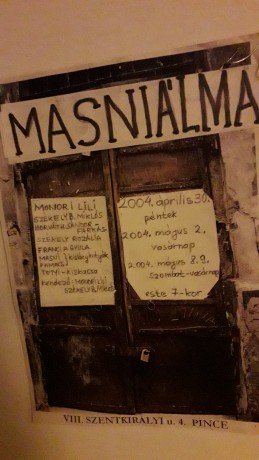 MASNIÁLMA
MONORI LILI
SZÉKELY B. MIKLÓS
HORVÁTH
FARKAS
SZÉKELY ROZÁLIA
FRANCIA GYULA
MASNI
TEPSI-kiskacsa
rendező: MONORI LILI
SZÉKELY B. MIKLÓS
2004. április 30.
péntek
2004. május 2.
vasárnap
2004. május 8.9.
szombat-vasárnap
este 7-kor
VIII. SZENTKIRÁLYI u. 4. PINCE